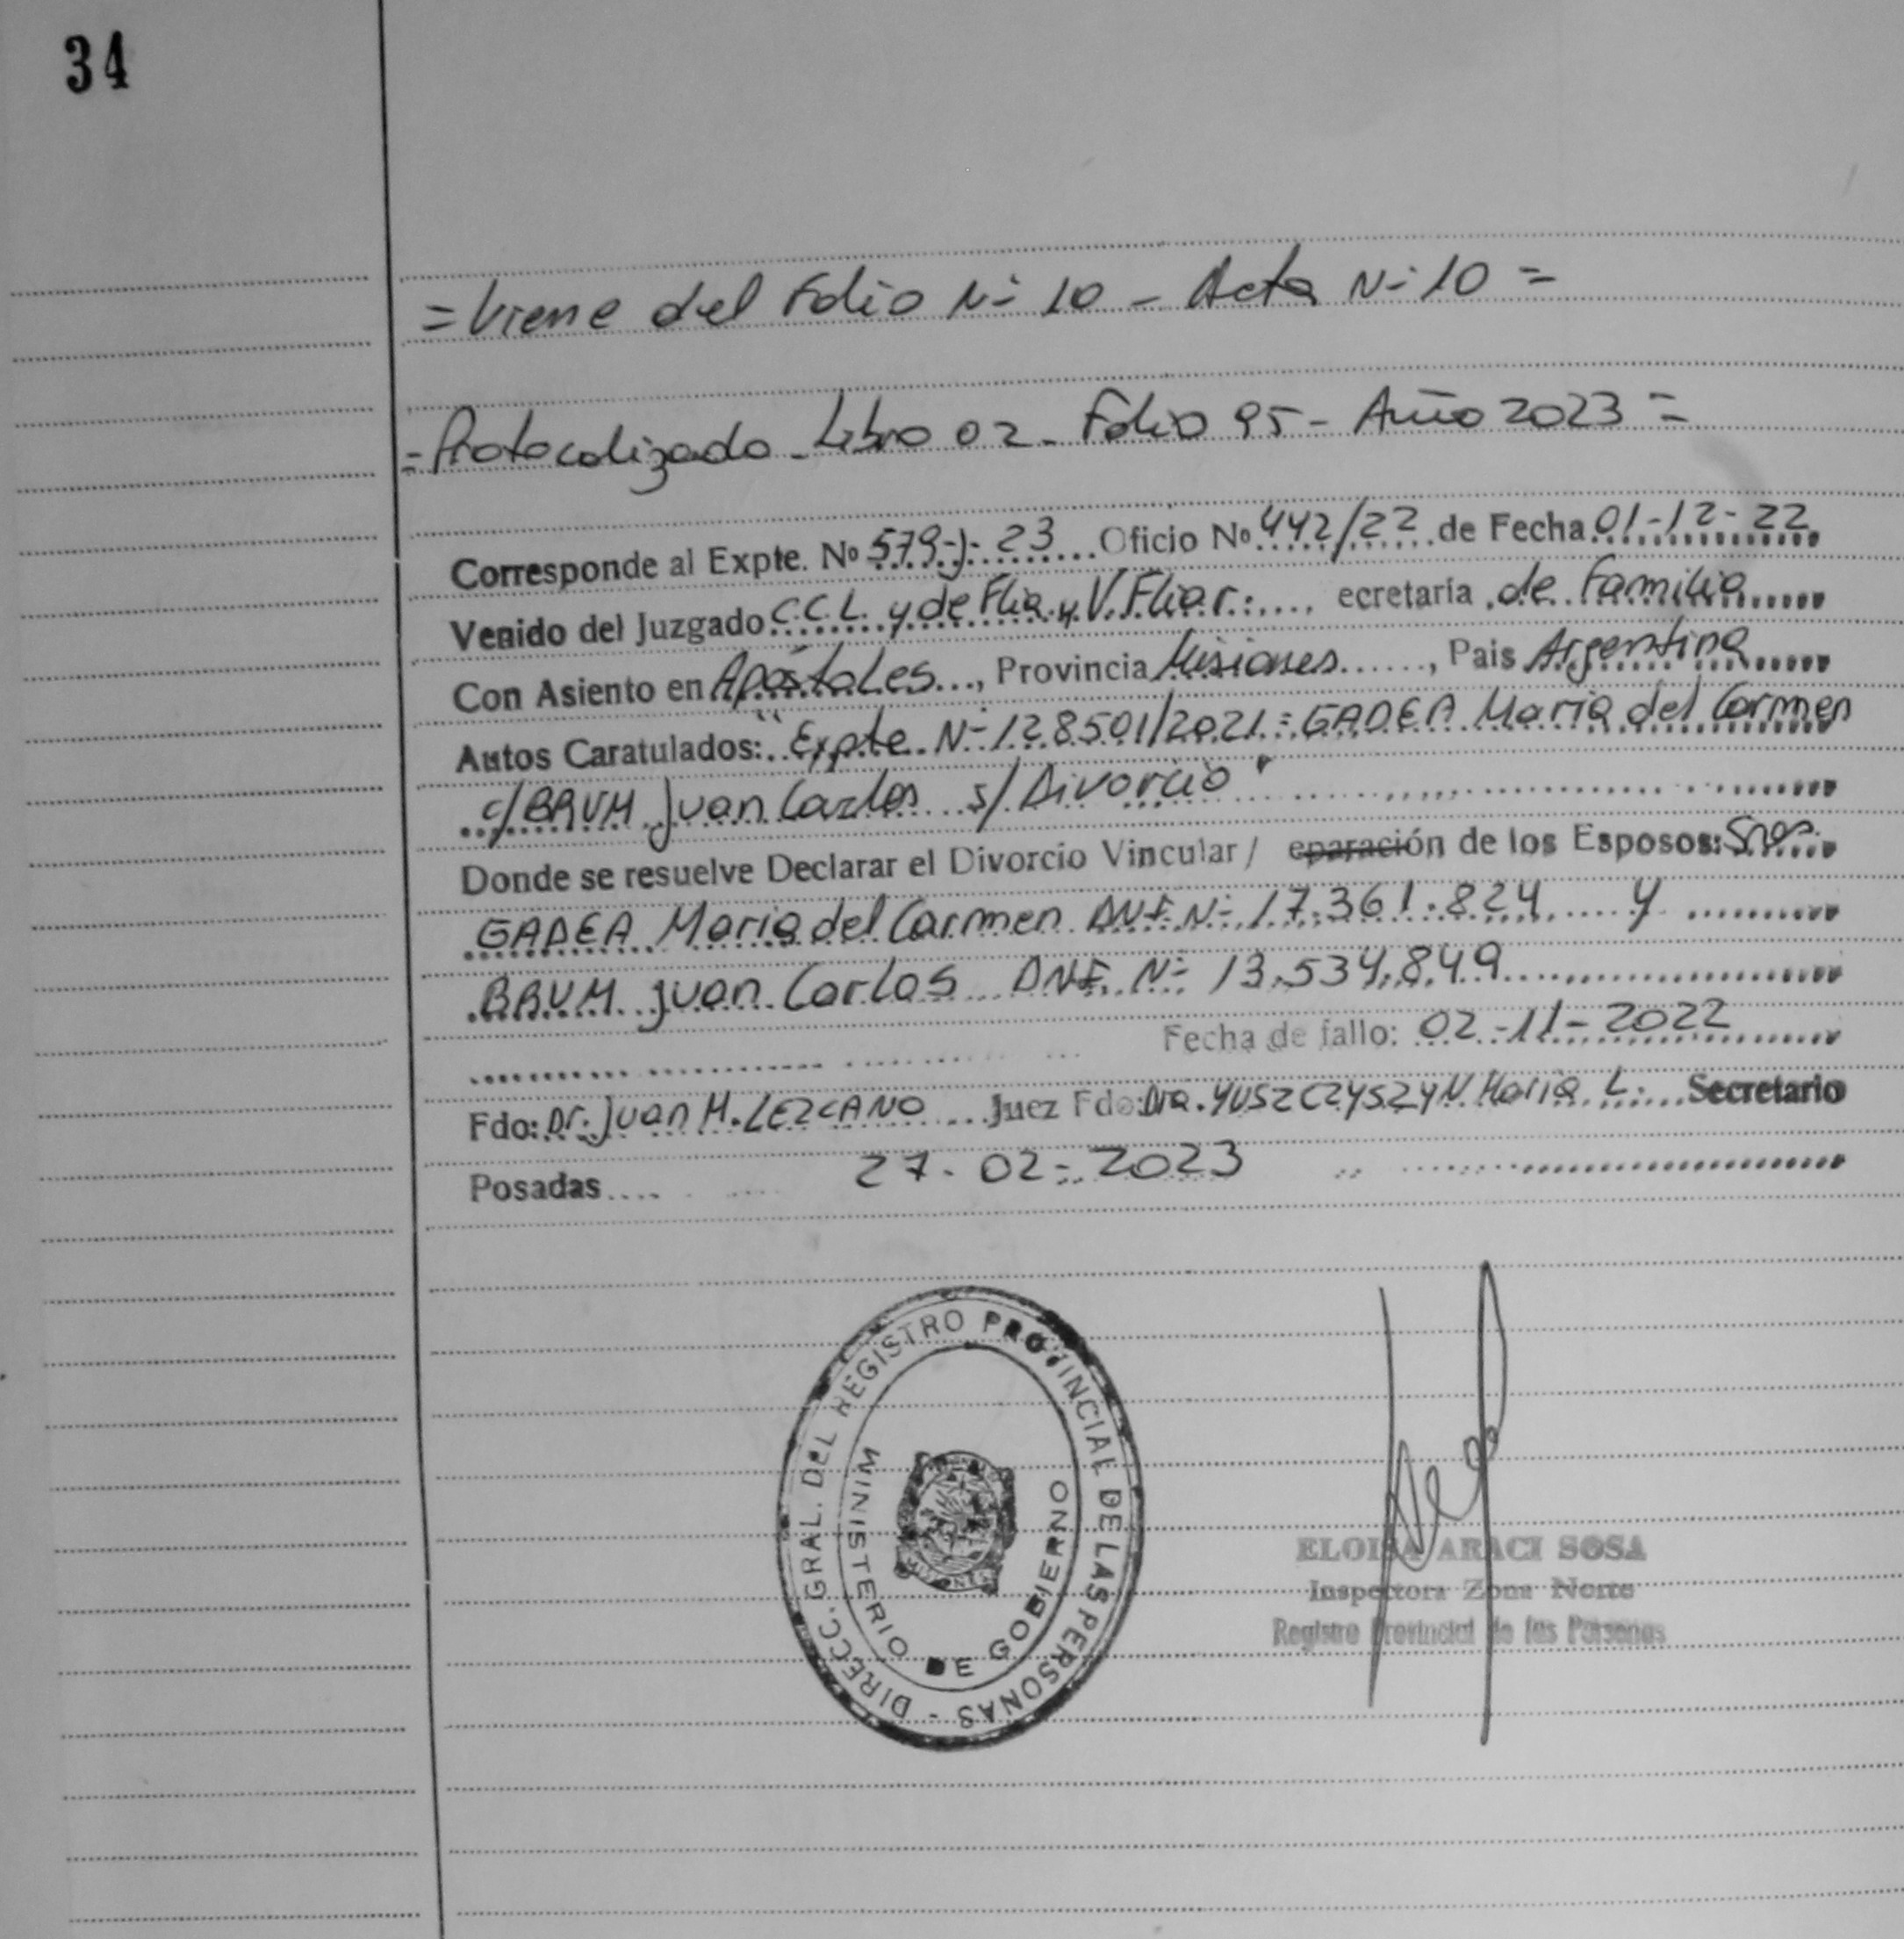 34
= Viene del Folio Nº 10 - Acta Nº 10 =
= Protocolizado - Libro 02 - Folio 95 - Año 2023 =
Corresponde al Expte. Nº 579-J-23 Oficio Nº 442/22 de Fecha 01-12-22
Venido del Juzgado C.C.L. y de Flia. y V. Fliar. ecretaría de Familia
Con Asiento en Apóstoles, Provincia Misiones, Pais Argentina
Autos Caratulados: "Expte Nº 128501/2021 = GADEA Maria del Carmen
c/ BRUM Juan Carlos s/ Divorcio"
Donde se resuelve Declarar el Divorcio Vincular / eparación de los Esposos: Sres.
GADEA Maria del Carmen DNI Nº 17.361.824 y
BRUM Juan Carlos DNI Nº 13.534.849
Fecha de fallo: 02-11-2022
Fdo: Dr. Juan M. LEZCANO Juez Fdo: Dra. YUSZCZYSZYN Maria L. Secretario
Posadas 27-02-2023
DIRECC. GRAL. DEL REGISTRO PROVINCIAL DE LAS PERSONAS -
MINISTERIO DE GOBIERNO
MISIONES
ELOISA ARACI SOSA
Inspectora Zona Norte
Registro Provincial de las Personas